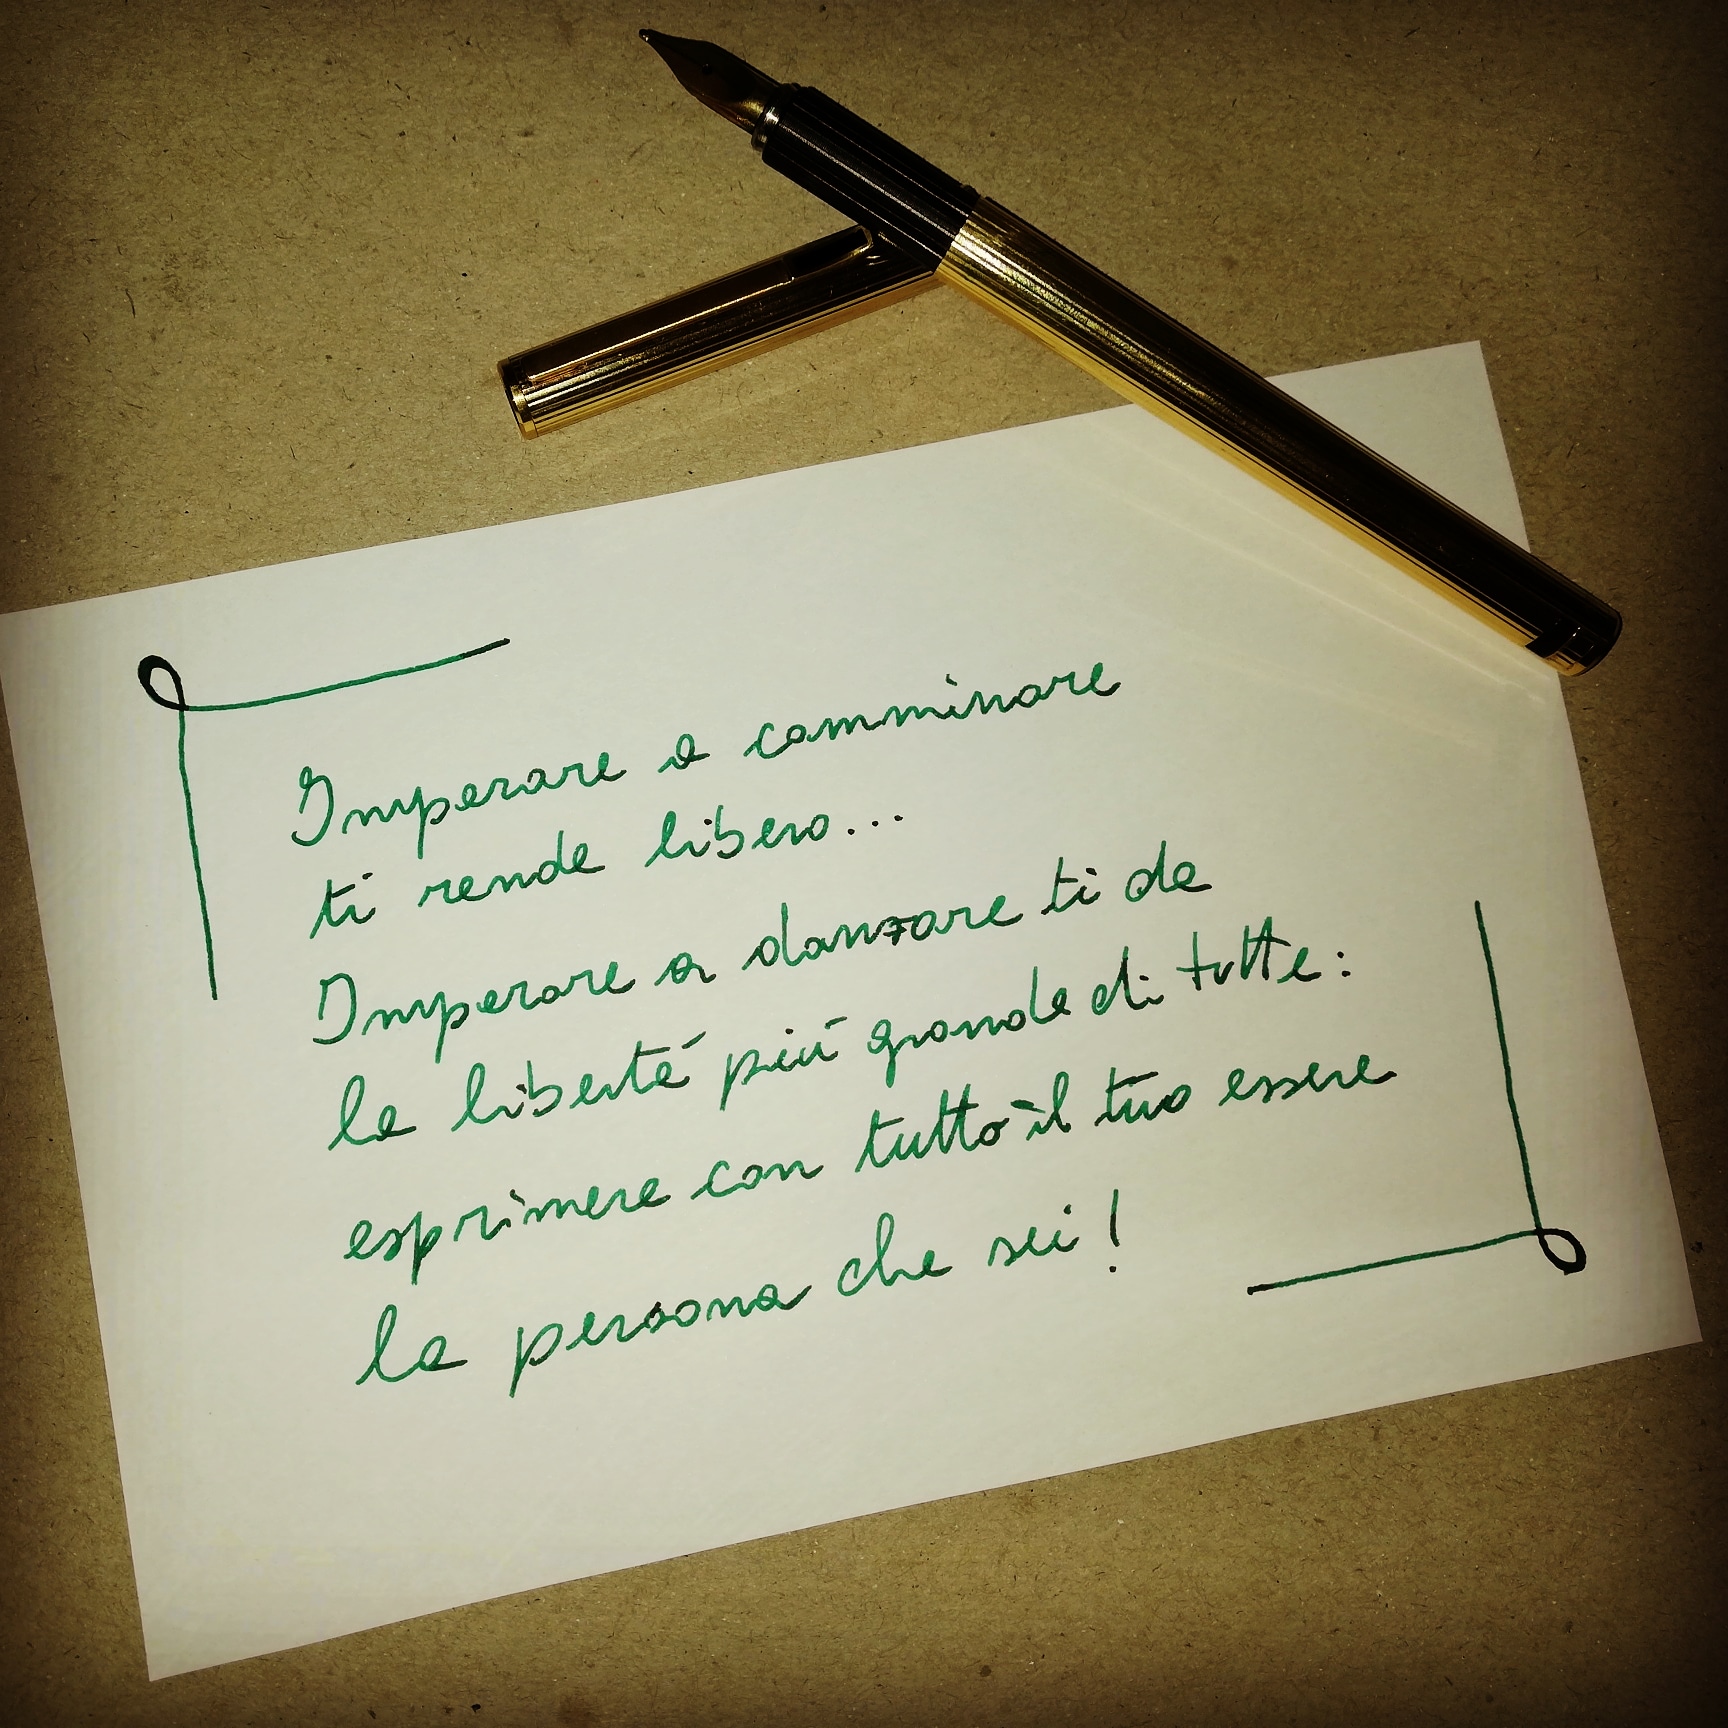 Imperare a camminare
ti rende libero...
Imperare a danzare ti da
la libertá piú grande di tutte:
esprimere con tutto il tuo essere
la persona che sei!